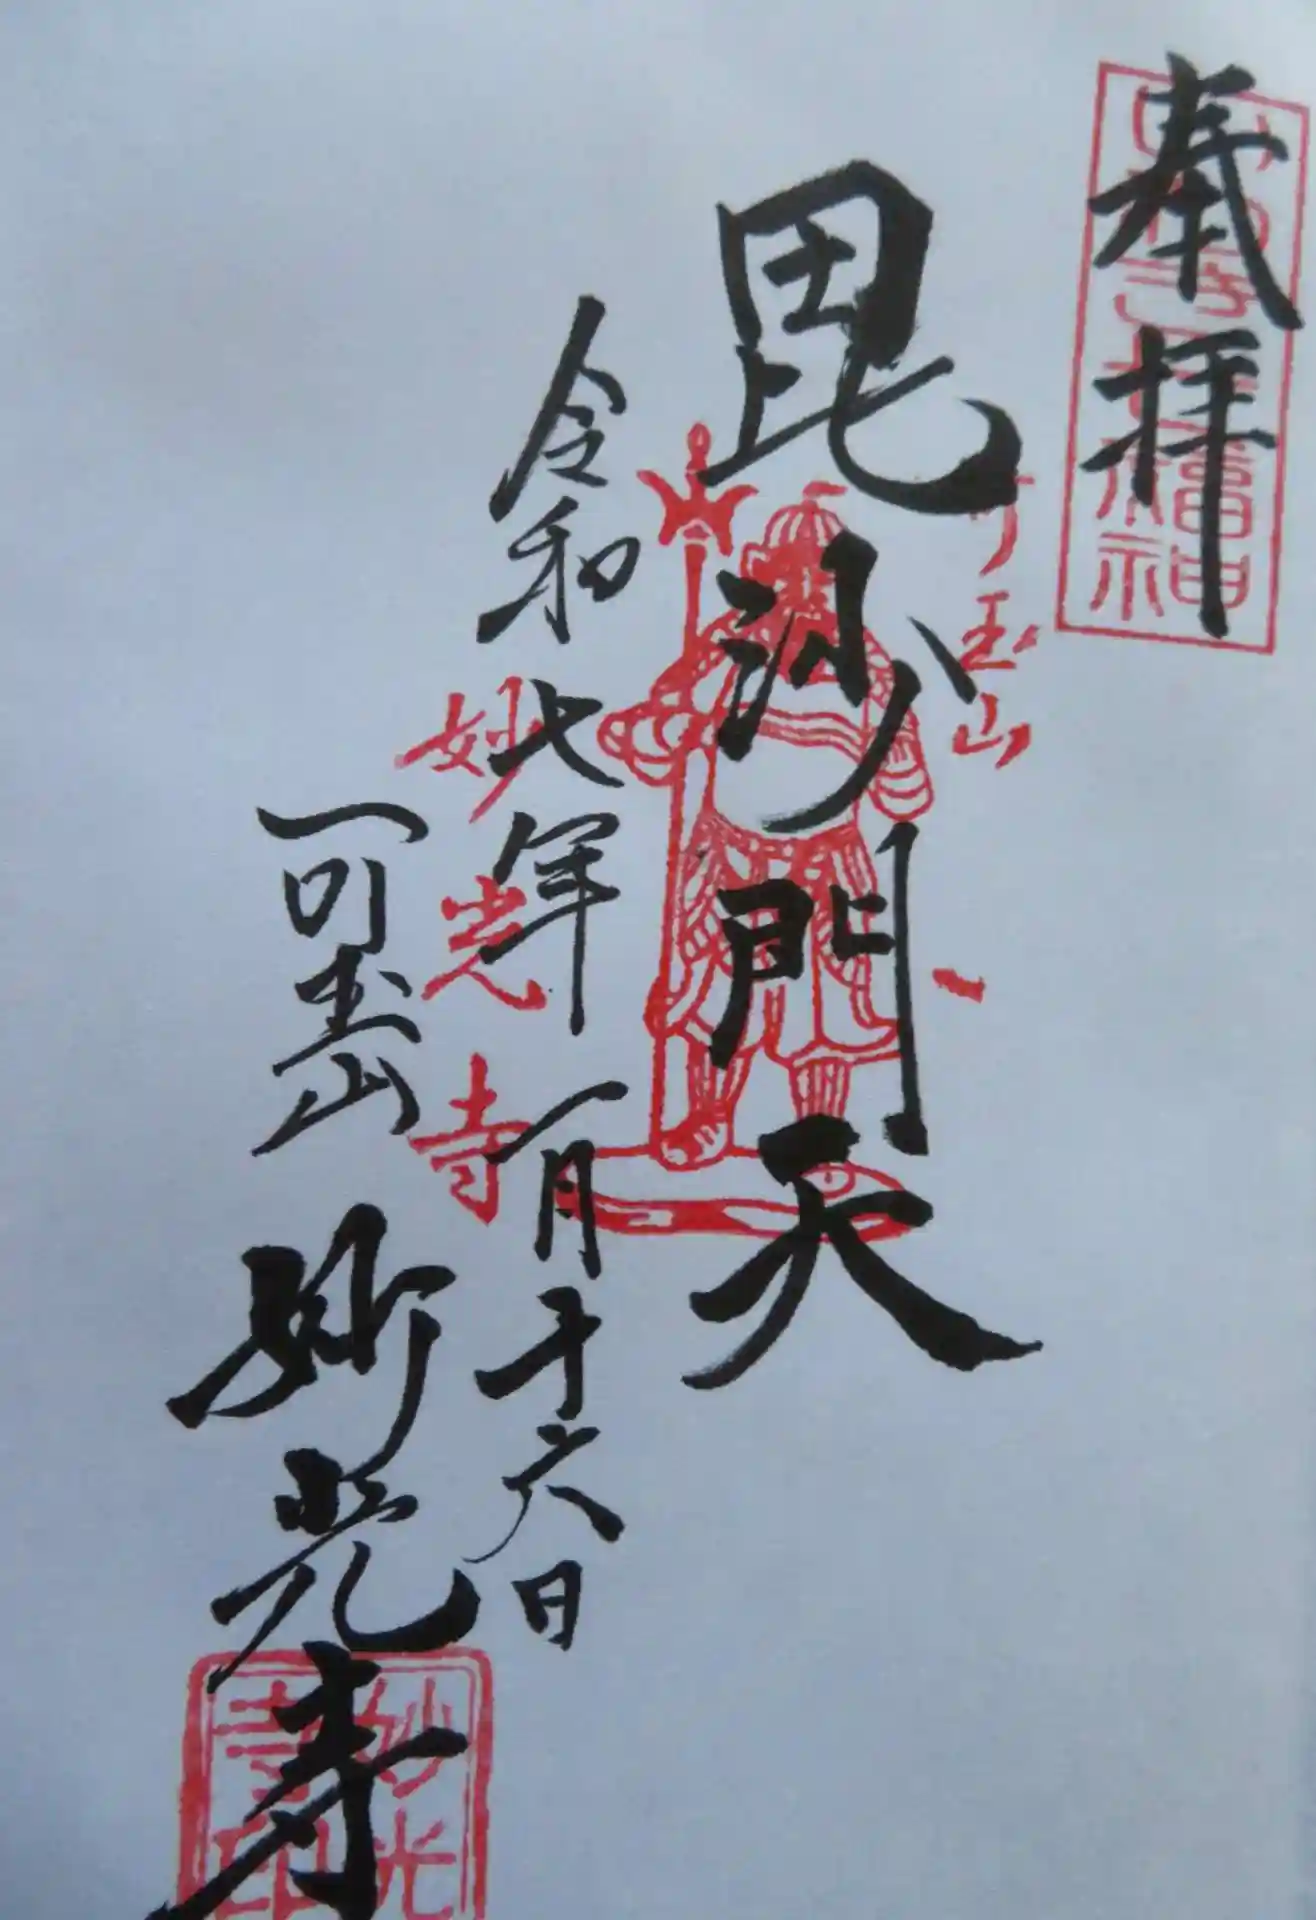 奉拝
毘沙門天
令和七年一月十六日
一可玉山
妙光寺
可玉山
妙光寺
七福神
妙光
寺印